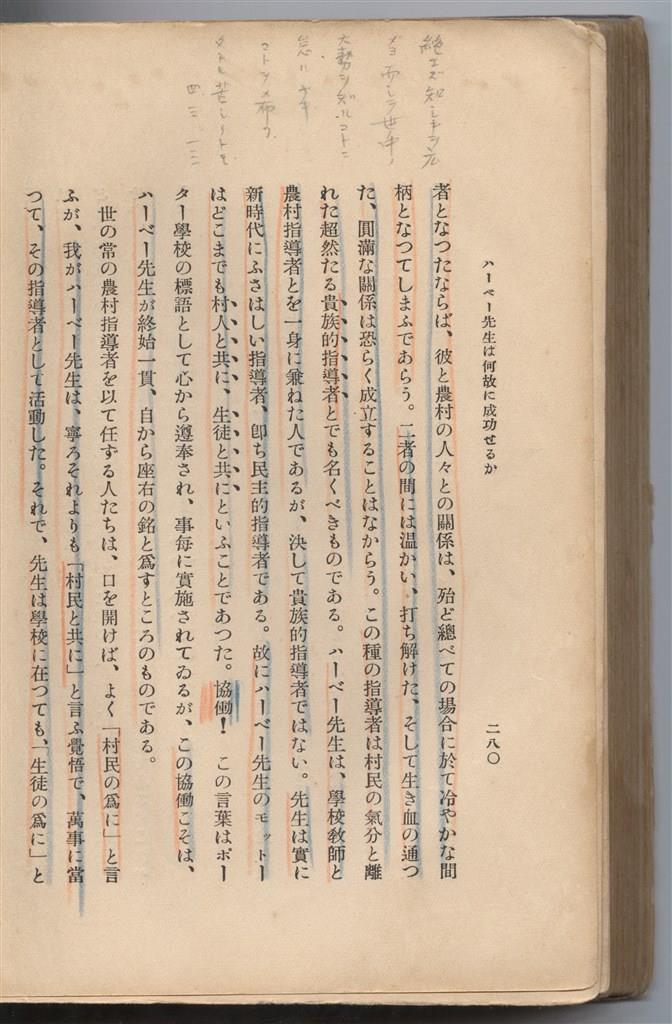 ハーベー先生は何故に成功せるか
二八〇
者となつたならば、彼と農村の人々との關係は、殆ど總べての場合に於て冷やかな間
柄となつてしまふであらう。二者の間には温かい、打ち解けた、そして生き血の通つ
た、圓滿な關係は恐らく成立することはなからう。この種の指導者は村民の氣分と離
れた超然たる貴族的指導者とでも名くべきものである。ハーベー先生は、學校教師と
農村指導者とを一身に兼ねた人であるが、決して貴族的指導者ではない。先生は實に
新時代にふさはしい指導者、卽ち民主的指導者である。故にハーベー先生のモットー
はどこまでも村人と共に、生徒と共にといふことであつた。協働！　この言葉はポー
ター學校の標語として心から遵奉され、事每に實施されてゐるが、この協働こそは、
ハーベー先生が終始一貫、自から座右の銘と爲すところのものである。
世の常の農村指導者を以て任ずる人たちは、口を開けば、よく「村民の爲に」と言
ふが、我がハーベー先生は、寧ろそれよりも「村民と共に」と言ふ覺悟で、萬事に當
つて、その指導者として活動した。それで、先生は學校に在つても、「生徒の爲に」と
絶エズ知
世中ノ
大勢
コトニ
四、三、一三